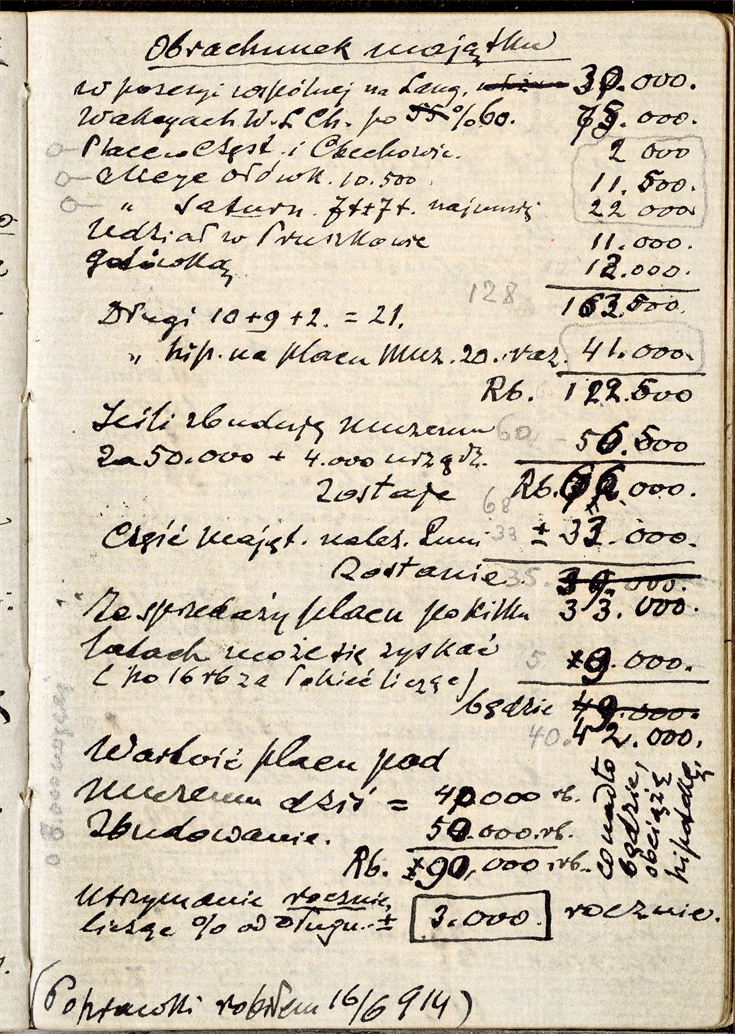 Obrachunek majątku
w posesyi wspólnej na Lang. 30.000.
W akcyach W. Ł Ch. po 55% 60. 75.000.
Place w Częst. i Czechowie. 2 000
Akcye ołówk. 10.500 11.500.
" Saturn. 7++7+. najmniej 22 000
Udział w Pruszkowie 11.000.
gotówką 12.000.
128 163.500.
Długi 10+9+2. = 21.
" hip. na placu Muz. 20. raz. 41.000.
Rb. 122.500
Jeśli zbuduję muzeum 60 - 56.500
za 50.000 + 4.000 urządz.
Zostaje Rb. 66.000.
68
Część mająt. należ. 33 ± 33.000.
Zostanie 35. 39.000.
Ze sprzedaży placu po kilku 33.000.
latach może się zyskać 5 +9.000.
(po 16 rb za łokieć licząc)
będzie 49.000.
40. 42.000.
Wartość placu pod
muzeum dziś = 40000 rb.
Zbudowanie. 50.000.rb.
Rb. ±90,000 rb.
co nadto
będzie,
obciążę
hipoteką.
Utrzymanie rocznie,
licząc % od długu ± 3.000. rocznie.
(Poprawki robiłem 16/6 914)